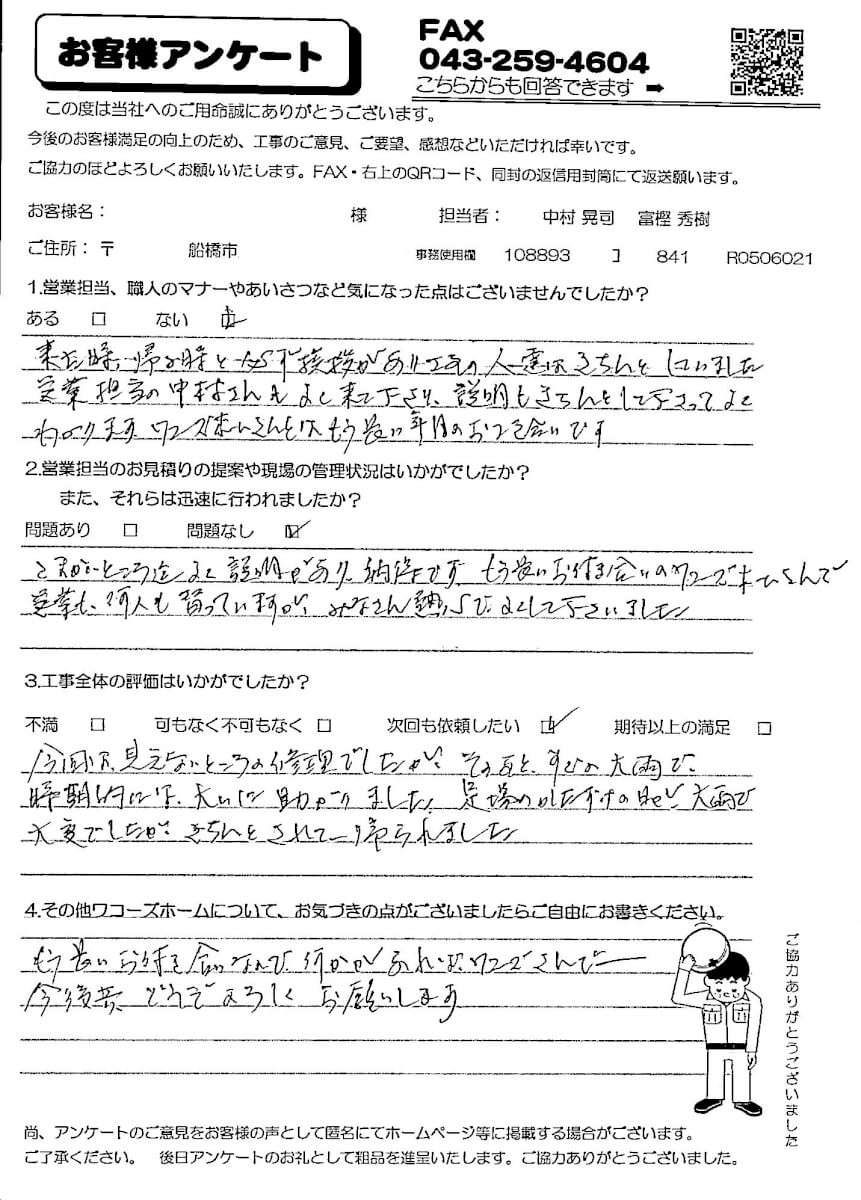 お客様アンケート
FAX
043-259-4604
こちらからも回答できます ➡
この度は当社へのご用命誠にありがとうございます。
今後のお客様満足の向上のため、工事のご意見、ご要望、感想などいただければ幸いです。
ご協力のほどよろしくお願いいたします。FAX・右上のQRコード、同封の返信用封筒にて返送願います。
お客様名： 様 担当者： 中村 晃司 富樫 秀樹
ご住所：〒 船橋市 事務使用欄 108893 コ 841 R0506021
1.営業担当、職人のマナーやあいさつなど気になった点はございませんでしたか？
ある □ ない ☑
来た時、帰る時と必ず挨拶があり工事の人達はきちんとしていました
営業担当の中村さんもよく来て下さり、説明もきちんとして下さってよく
わかります ワコーズホームさんとは、もう長い年月のおつき合いです
2.営業担当のお見積りの提案や現場の管理状況はいかがでしたか？
また、それらは迅速に行われましたか？
問題あり □ 問題なし ☑
ところ迄よく説明があり、納得です もう長いお付き合いのワコーズホームさんで
営業も、何人も替っていますが、みなさん よくして下さいました
3.工事全体の評価はいかがでしたか？
不満 □ 可もなく不可もなく □ 次回も依頼したい ☑ 期待以上の満足 □
今回は、見えないところの修理でしたが、そのあと、すぐの大雨で、
時期的には、大いに助かりました。足場のかたずけの日が、大雨で
大変でしたが、きちんとされて帰られました
4.その他ワコーズホームについて、お気づきの点がございましたらご自由にお書きください。
もう長いお付き合いなんで、何かがあればワコーズさんでー
今後共、どうぞよろしくお願いします
ご協力ありがとうございました
尚、アンケートのご意見をお客様の声として匿名にてホームページ等に掲載する場合がございます。
ご了承ください。 後日アンケートのお礼として粗品を進呈いたします。ご協力ありがとうございました。